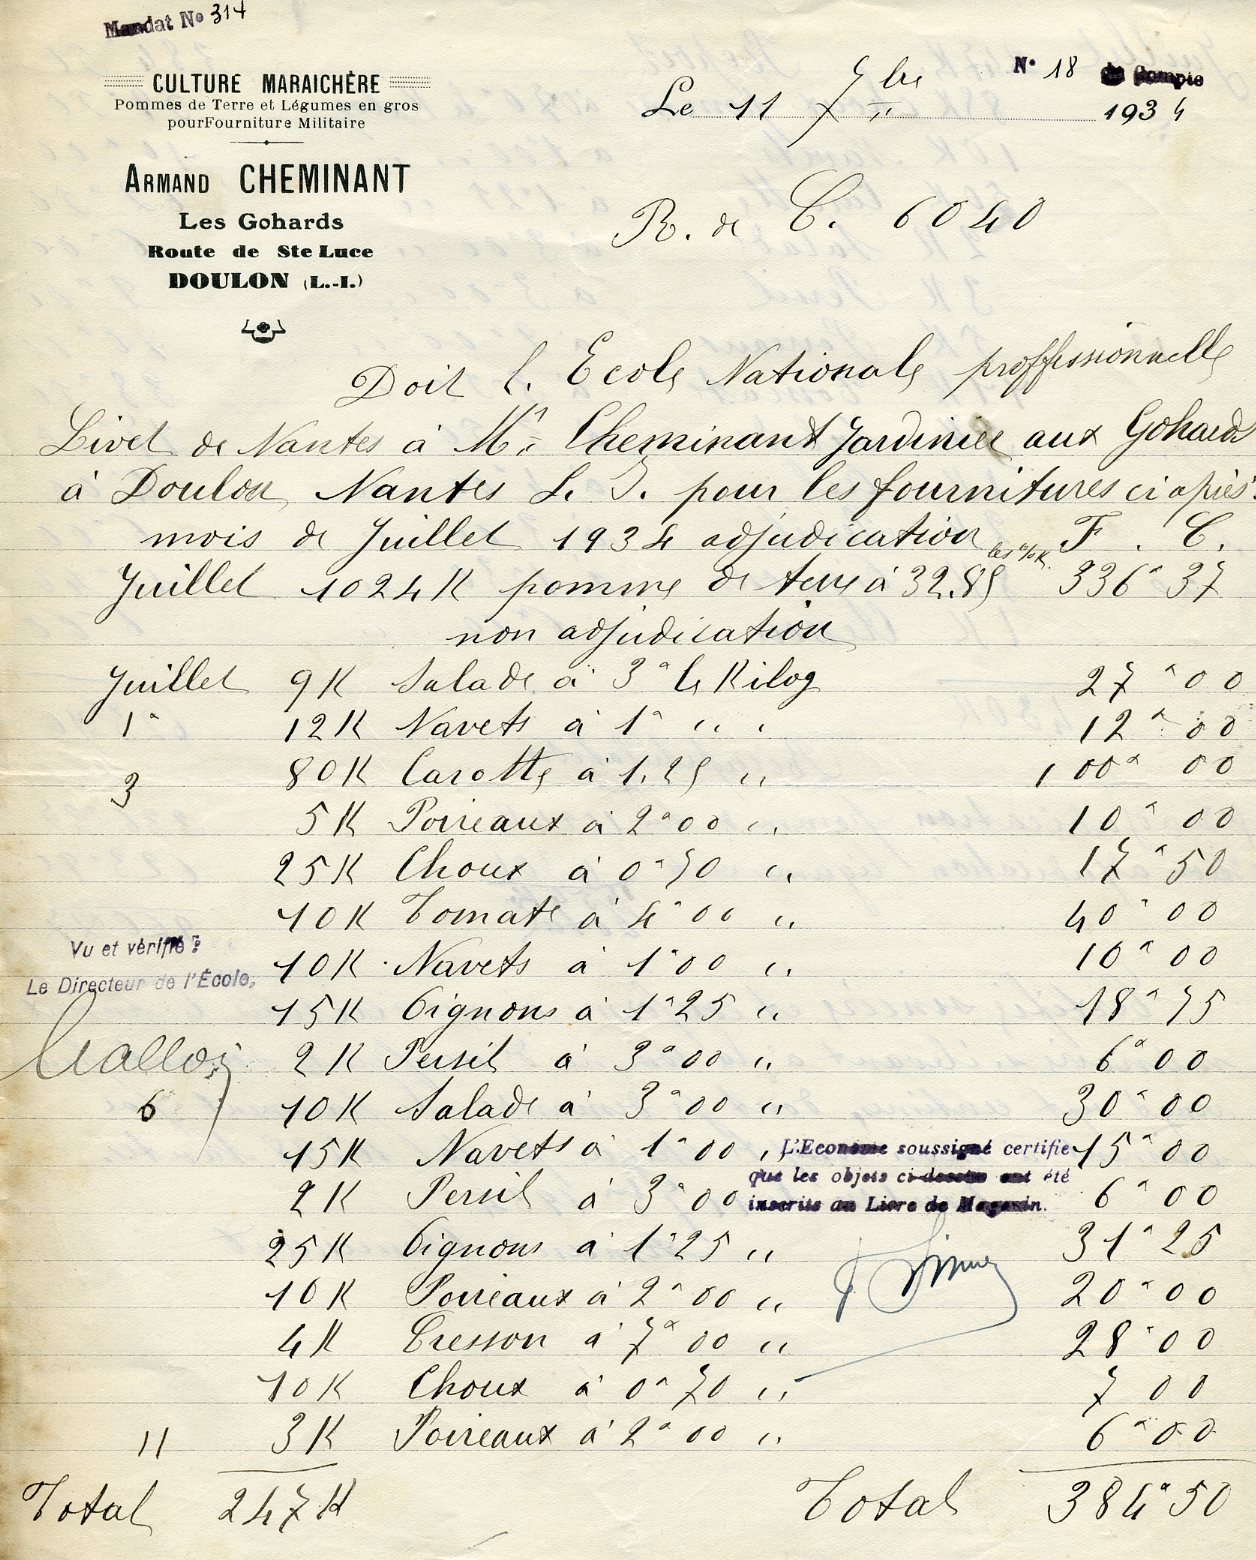 Mandat No 314
CULTURE MARAICHÈRE
Pommes de Terre et Légumes en gros
pour Fourniture Militaire
ARMAND CHEMINANT
Les Gohards
Route de Ste Luce
DOULON (L.-I.)
N° 18 de Compte
Le 11 7bre 1934
R. de C. 6040
Doit l. Ecole Nationale proffessionnelle
Livet de Nantes à Mr Cheminant Jardinier aux Gohards
à Doulon Nantes L. I. pour les fournitures ci après
mois de Juillet 1934 adjudication F. C.
les % K.
Juillet 1024K pomme de terre à 32.85 336" 37
non adjudication
Juillet 9K Salade à 3" le Kilog 27" 00
1" 12K Navets à 1" " " 12" 00
80K Carotte à 1.25 " 100" 00
3
5K Poireaux à 2"00 " 10" 00
25K Choux à 0"70 " 17" 50
10K Tomate à 4"00 " 40" 00
Vu et vérifié :
Le Directeur de l'École,
10K Navets à 1"00 " 10" 00
15K Oignons à 1"25 " 18" 75
2K Persil à 3"00 " 6" 00
6 10K Salade à 3"00 " 30" 00
15K Navets à 1"00 " 15" 00
L'Econome soussigné certifie
que les objets ci-dessus ont été
inscrits au Livre de Magasin.
2K Persil à 3"00 6" 00
25K Oignons à 1"25 " 31" 25
10K Poireaux à 2"00 " 20" 00
4K Cresson à 7"00 " 28" 00
10K Choux à 0"70 " 7 00
11 3K Poireaux à 2"00 " 6" 00
Total 247K Total 384"50